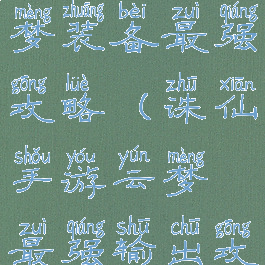 mèng zhuāng bèi zuì qiáng
梦装备最强
gōng lüè zhū xiān
攻略（诛仙
shǒu yóu yún mèng
手游云梦
zuì qiáng shū chū gōng
最强输出攻